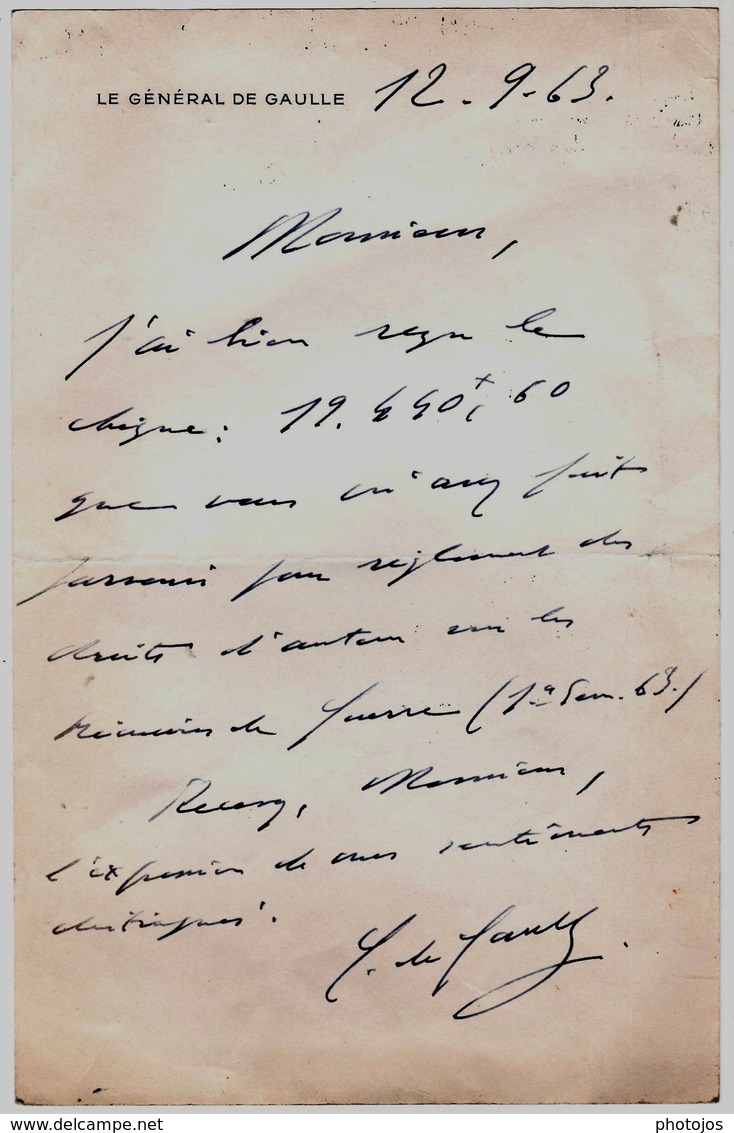 LE GÉNÉRAL DE GAULLE 12.9.63.
Monsieur,
J'ai bien reçu le
chèque: 19.440,60
que vous m'avez fait
parvenir pour règlement des
droits d'auteur sur les
Mémoires de Guerre (1er Sem. 63.)
Recevez, Monsieur,
l'expression de mes sentiments
distingués.
C. de Gaulle.
delcampe.net
photojos